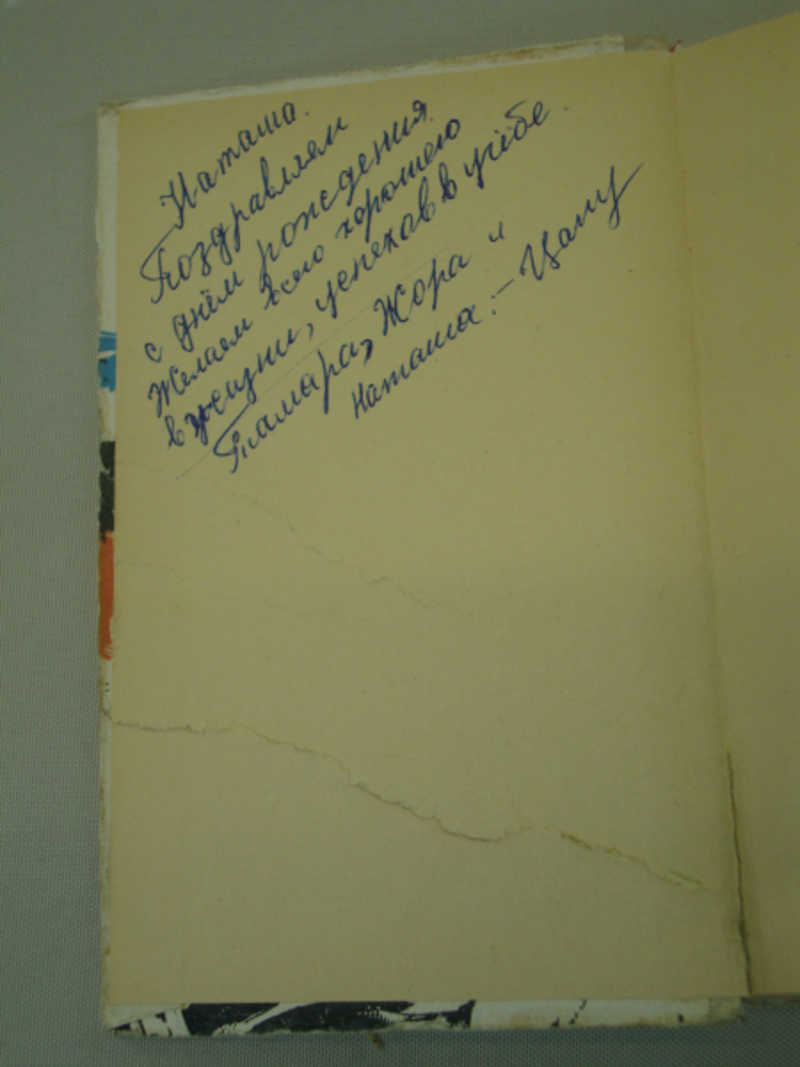 Наташа.
Поздравляем
с днём рождения.
Желаем всего хорошего
в жизни, успехов в учёбе.
Тамара, Жора и
Наташа. –